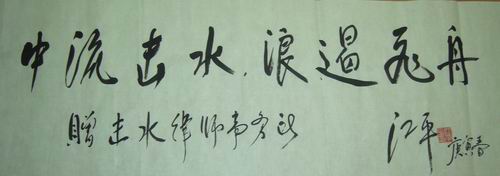 中流击水浪遏飞舟
赠击水律师事务所
江平
庚寅春